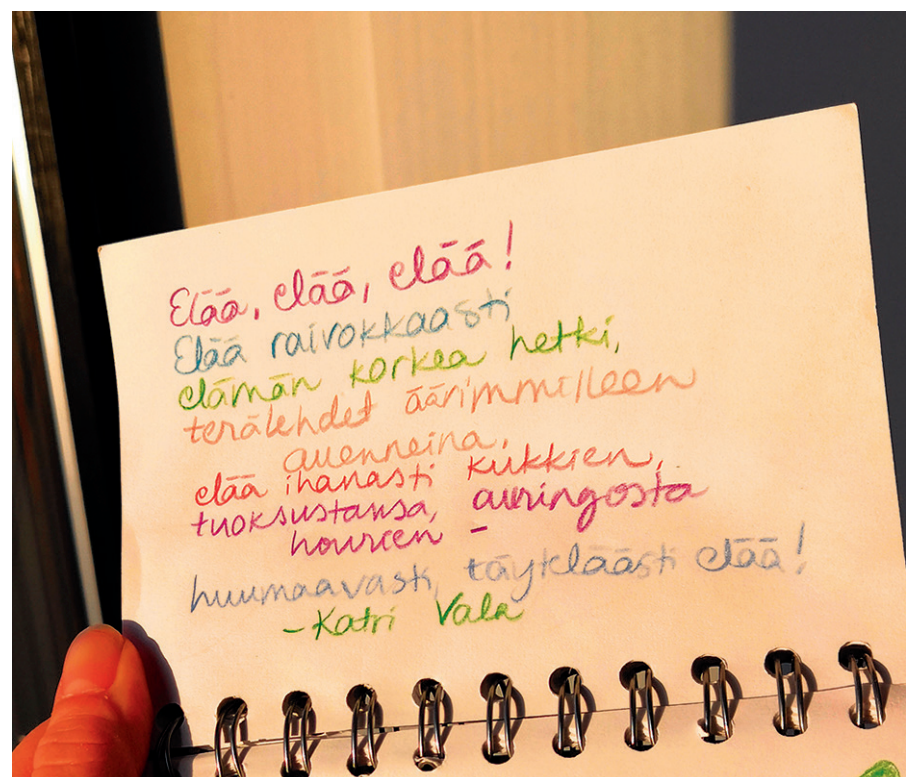 Elää, elää, elää!
Elää raivokkaasti
elämän korkea hetki,
terälehdet äärimmilleen
auenneina,
elää ihanasti kukkien,
tuoksustansa, auringosta
hourien –
huumaavasti, täyteläästi elää!
-Katri Vala